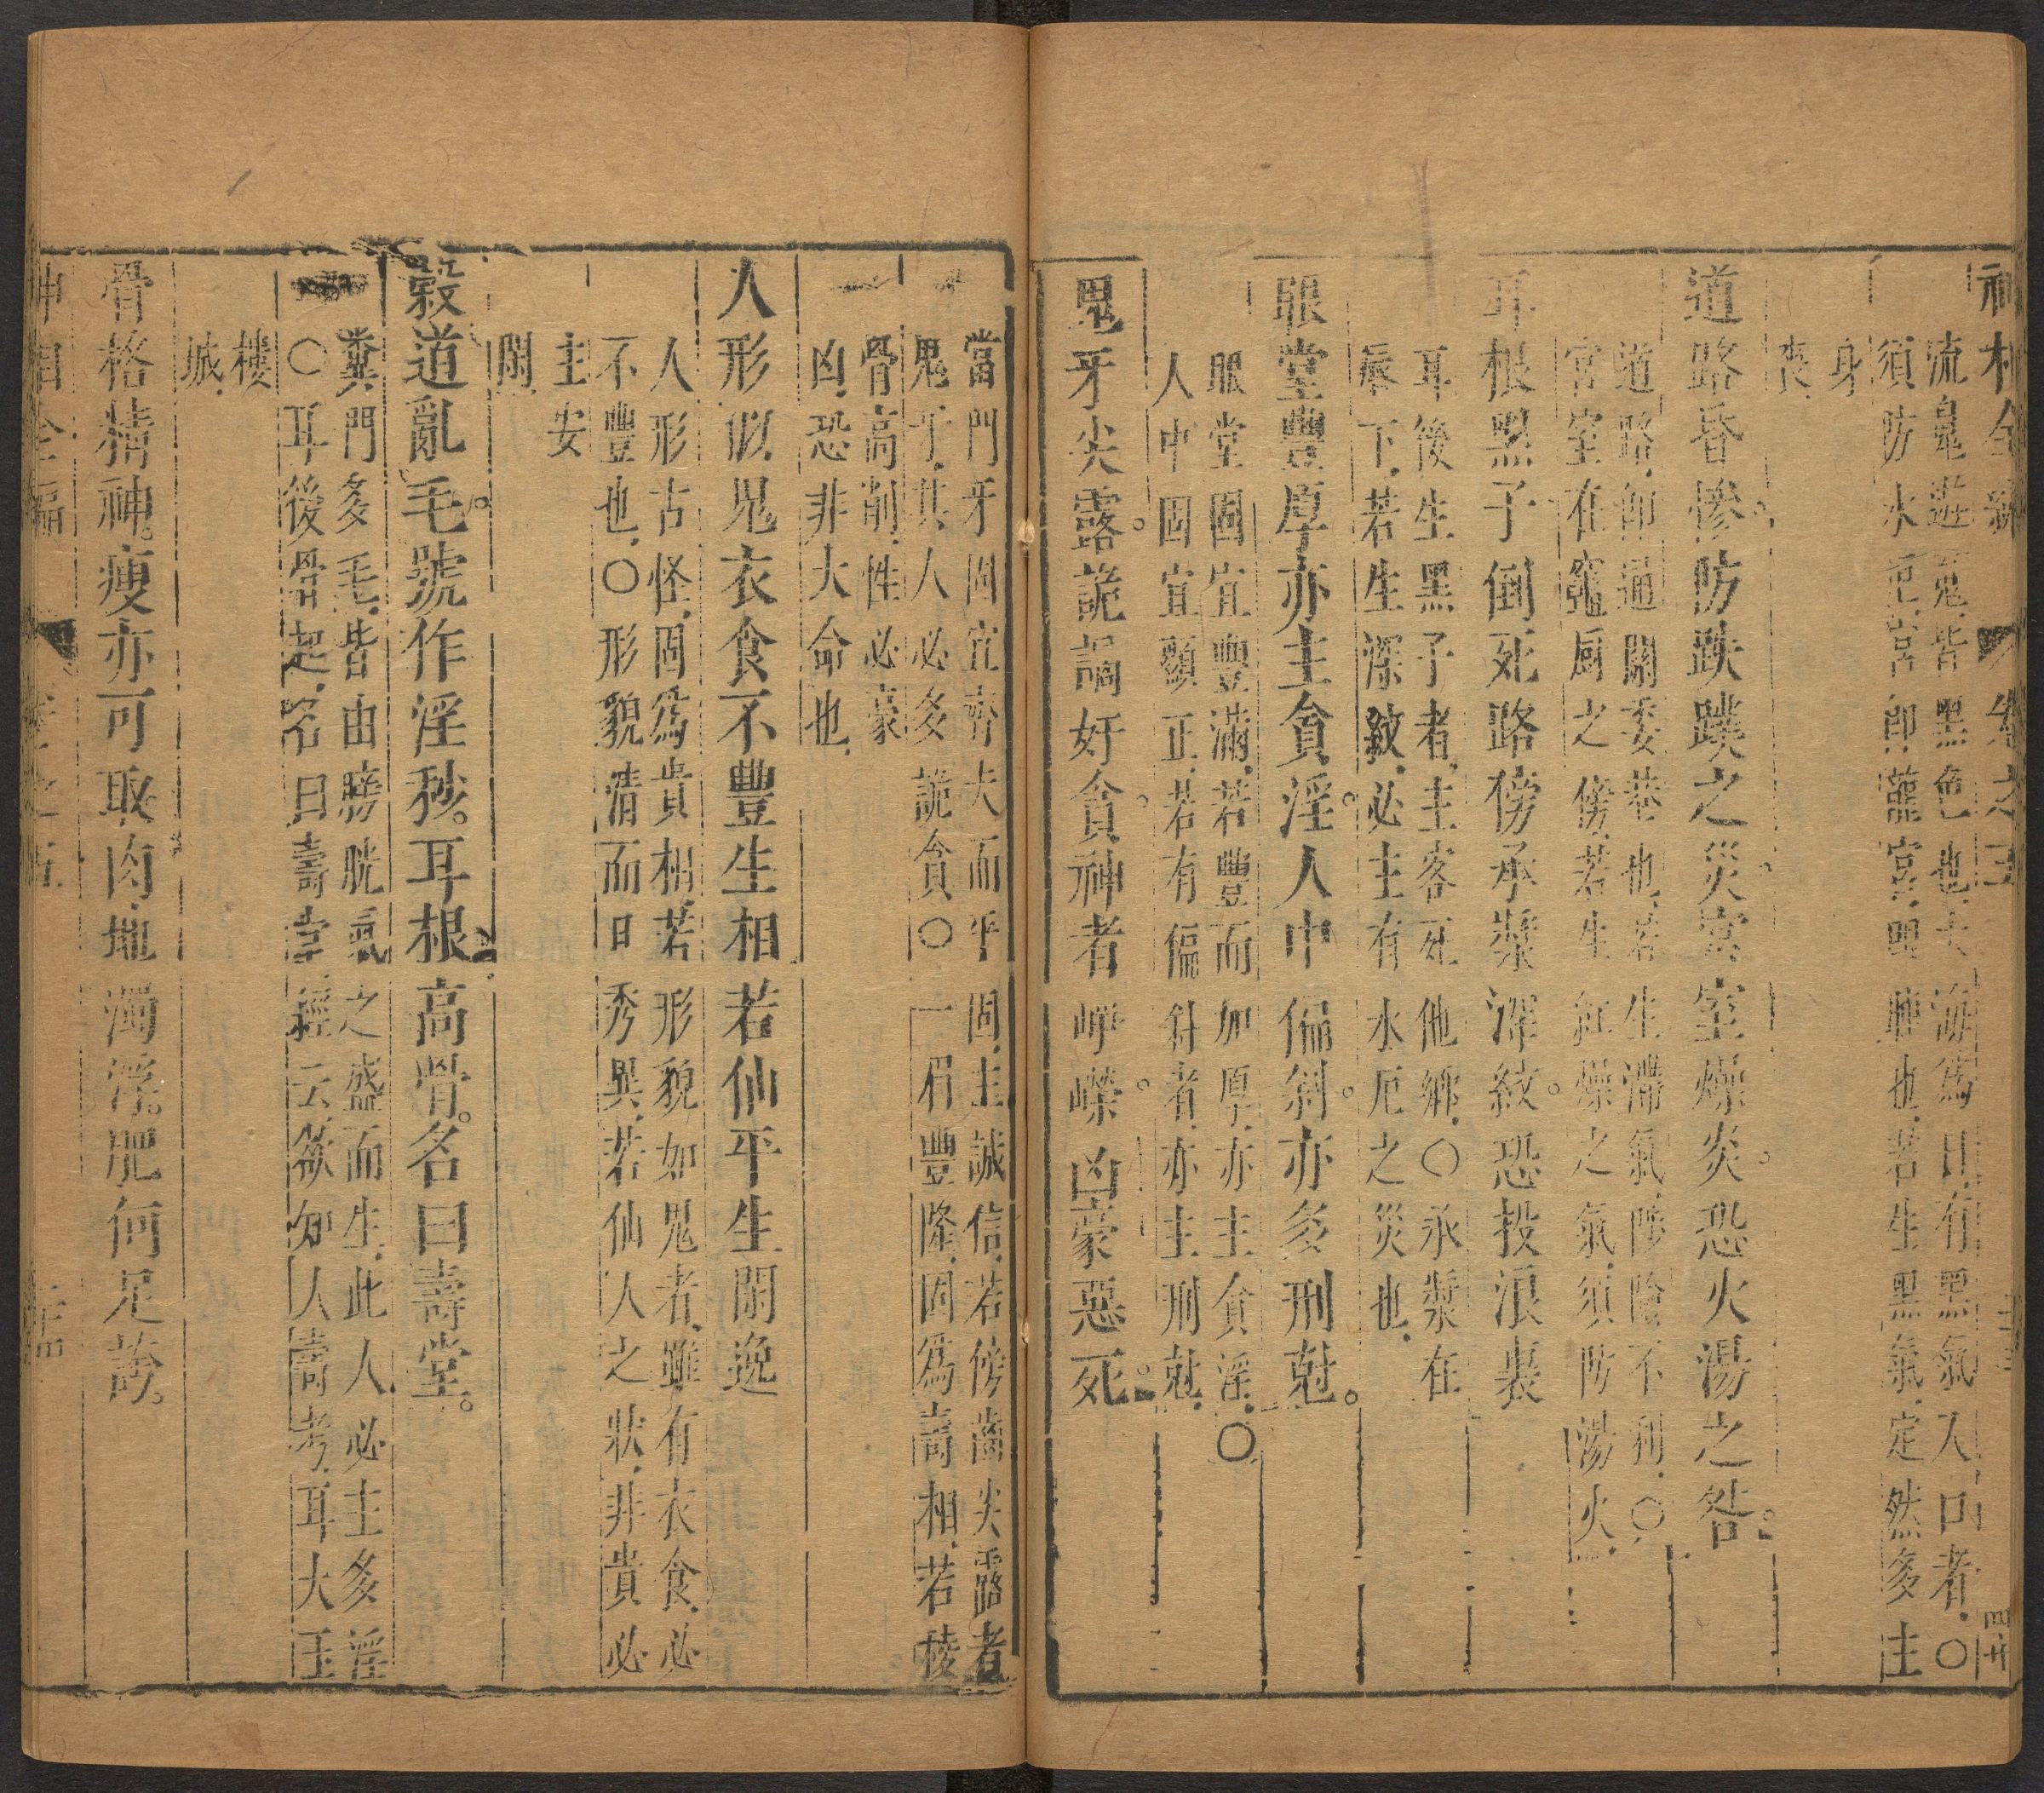 神相全編 卷之五
流鬼遊鬼皆黑色也夫海爲口有黑氣入口者○
須防水厄宮卽龍宮眼腫也若生黑氣定然多主
身
喪
道路昏慘防跌蹼之災宮室燥炎恐火湯之咎
道路卽通關委巷也若生滯氣陟陰不利○
宮室在竈厨之傍若生紅燥之氣須防湯火
耳根黑子倒死路傍承漿深紋恐投浪裏
耳後生黑子者主客死他鄉○承漿在
唇下若生深紋必主有水厄之災也
眼堂豐厚亦主貪淫人中偏斜亦多刑尅
眼堂固宜豐滿若豐而加厚亦主貪淫○
人中固宜顯正若有偏斜者亦主刑尅
鬼牙尖露詭譎奸貪神者崢嶸凶豪惡死
當門牙固宜齊大而平固主誠信若傍齒尖露者
鬼牙其人必多詭貪○一眉豐隆固爲壽相若稜
骨高削性必豪
凶恐非大命也
人形似鬼衣食不豐生相若仙平生閑逸
人形古怪固爲貴相若形貌如鬼者雖有衣食必
不豐也○形貌清而日秀異若仙人之狀非貴必
主安
閑
穀道亂毛號作淫秒耳根高骨名曰壽堂
糞門多毛皆由膀胱氣之盛而生此人必主多淫
○耳後骨起名曰壽堂經云欲知人壽考耳大玉
樓
城
骨格精神瘦亦可取肉地濁浮肥何足誇
神相全編 卷之五 二十四